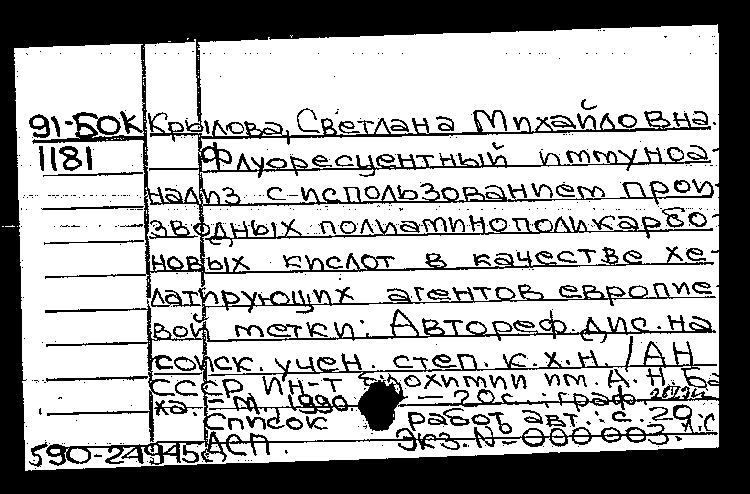 91-БОК Крылова, Светлана Михайловна.
1181 Флуоресцентный иммуноа-
нализ с использованием прои-
зводных полиаминополикарбо-
новых кислот в качестве хе-
латирующих агентов европие-
вой метки: Автореф. дис. на
соиск. учен. степ. к.х.н. /АН
СССР. Ин-т биохимии им. А. Н. Ба-
ха. - М., 1990. - 20 с. : граф.
Список работ авт.: с. 20
590-24945 ДСП. Экз. N-000003.